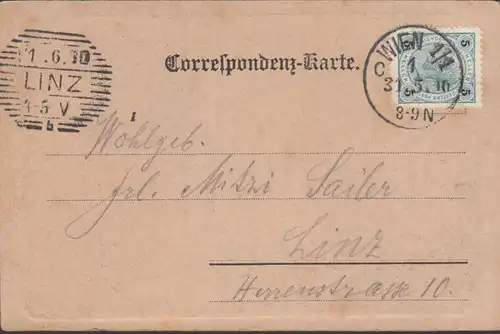 1.6.00
LINZ
4-5 V
b
Correspondenz-Karte.
WIEN 1/1
1
31.5.
8-9N
5 5
5 5
1
Wohlgeb.
Frl. Mitzi Sailer
Linz
Herrenstrasse 10.